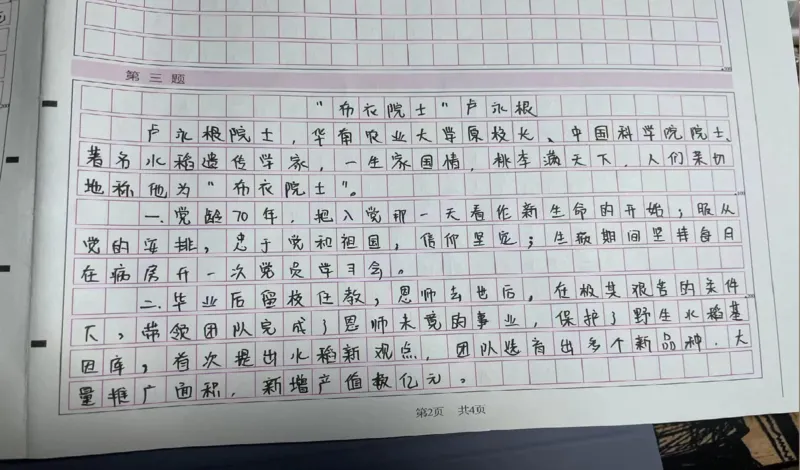 第三题
"布衣院士"卢永根
卢永根院士，华南农业大学原校长、中国科学院院士、
著名水稻遗传学家，一生家国情，桃李满天下，人们亲切
地称他为"布衣院士"。
一.党龄70年，把入党那一天看作新生命的开始；服从
党的安排，忠于党和祖国，信仰坚定；生病期间坚持每月
在病房开一次党员学习会。
二.毕业后留校任教，恩师去世后，在极其艰苦的条件
下，带领团队完成了恩师未竟的事业，保护了野生水稻基
因库，首次提出水稻新观点，团队选育出多个新品种，大
量推广面积，新增产值数亿元。
第2页 共4页